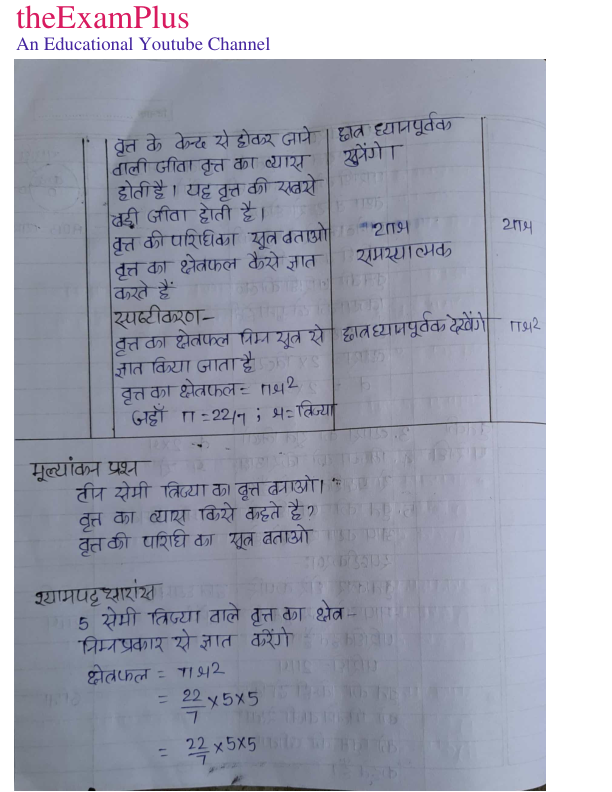 theExamPlus
An Educational Youtube Channel
वृत्त के केन्द्र से होकर जाने
वाली जीवा वृत्त का व्यास
होती है। यह वृत्त की सबसे
बड़ी जीवा होती है।
वृत्त की परिधि का सूत्र बताओ
वृत्त का क्षेत्रफल कैसे ज्ञात
करते हैं
स्पष्टीकरण-
वृत्त का क्षेत्रफल निम्न सूत्र से
ज्ञात किया जाता है
वृत्त का क्षेत्रफल = πr2
जहाँ π = 22/7 ; r = त्रिज्या
छात्र ध्यानपूर्वक
सुनेंगे।
2πr
समस्यात्मक
छात्र ध्यानपूर्वक देखेंगे
2πr
πr2
मूल्यांकन प्रश्न
तीन सेमी त्रिज्या का वृत्त बनाओ।
वृत्त का व्यास किसे कहते है?
वृत्त की परिधि का सूत्र बताओ
श्यामपट्ट सारांस
5 सेमी त्रिज्या वाले वृत्त का क्षेत्र-
निम्न प्रकार से ज्ञात करेंगे
क्षेत्रफल = πr2
= 22/7 x 5 x 5
= 22/7 x 5 x 5